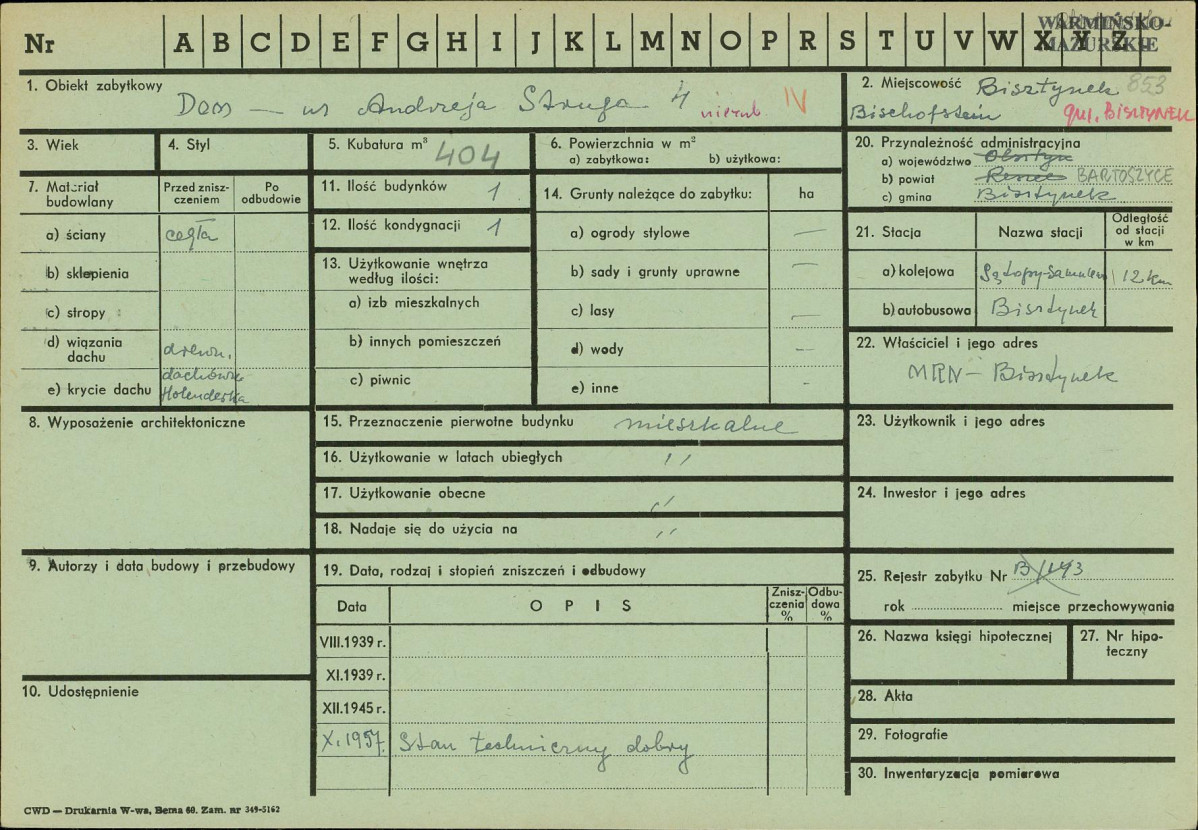 Nr A B C D E F G H I J K L M N O P R S T U V W X Y Z
WARMIŃSKO-
MAZURSKIE
1. Obiekt zabytkowy
Dom – ul Andrzeja Struga 4 nieruch IV
2. Miejscowość Bisztynek 853
Bischofstein gm. BISZTYNEK
3. Wiek
4. Styl
5. Kubatura m³ 404
6. Powierzchnia w m²
a) zabytkowa: b) użytkowa:
20. Przynależność administracyjna
a) województwo Olsztyn
b) powiat Reszel BARTOSZYCE
c) gmina Bisztynek
7. Materiał budowlany
Przed zniszczeniem
Po odbudowie
a) ściany cegła
b) sklepienia
c) stropy
d) wiązania dachu drewn.
e) krycie dachu dachówka Holenderka
11. Ilość budynków 1
12. Ilość kondygnacji 1
13. Użytkowanie wnętrza
według ilości:
a) izb mieszkalnych
b) innych pomieszczeń
c) piwnic
14. Grunty należące do zabytku: ha
a) ogrody stylowe —
b) sady i grunty uprawne —
c) lasy —
d) wody —
e) inne -
21. Stacja Nazwa stacji Odległość od stacji w km
a) kolejowa Sątopy-Samulewo 12 km
b) autobusowa Bisztynek
22. Właściciel i jego adres
MRN – Bisztynek
8. Wyposażenie architektoniczne
15. Przeznaczenie pierwotne budynku mieszkalne
16. Użytkowanie w latach ubiegłych ''
17. Użytkowanie obecne ''
18. Nadaje się do użycia na ''
23. Użytkownik i jego adres
24. Inwestor i jego adres
9. Autorzy i data budowy i przebudowy
19. Data, rodzaj i stopień zniszczeń i odbudowy
Data OPIS Zniszczenia % Odbudowa %
VIII.1939 r.
XI.1939 r.
XII.1945 r.
X.1957. Stan techniczny dobry
25. Rejestr zabytku Nr
rok miejsce przechowywania
26. Nazwa księgi hipotecznej
27. Nr hipoteczny
10. Udostępnienie
28. Akta
29. Fotografie
30. Inwentaryzacja pomiarowa
CWD — Drukarnia W-wa, Bema 60. Zam. nr 349-5162